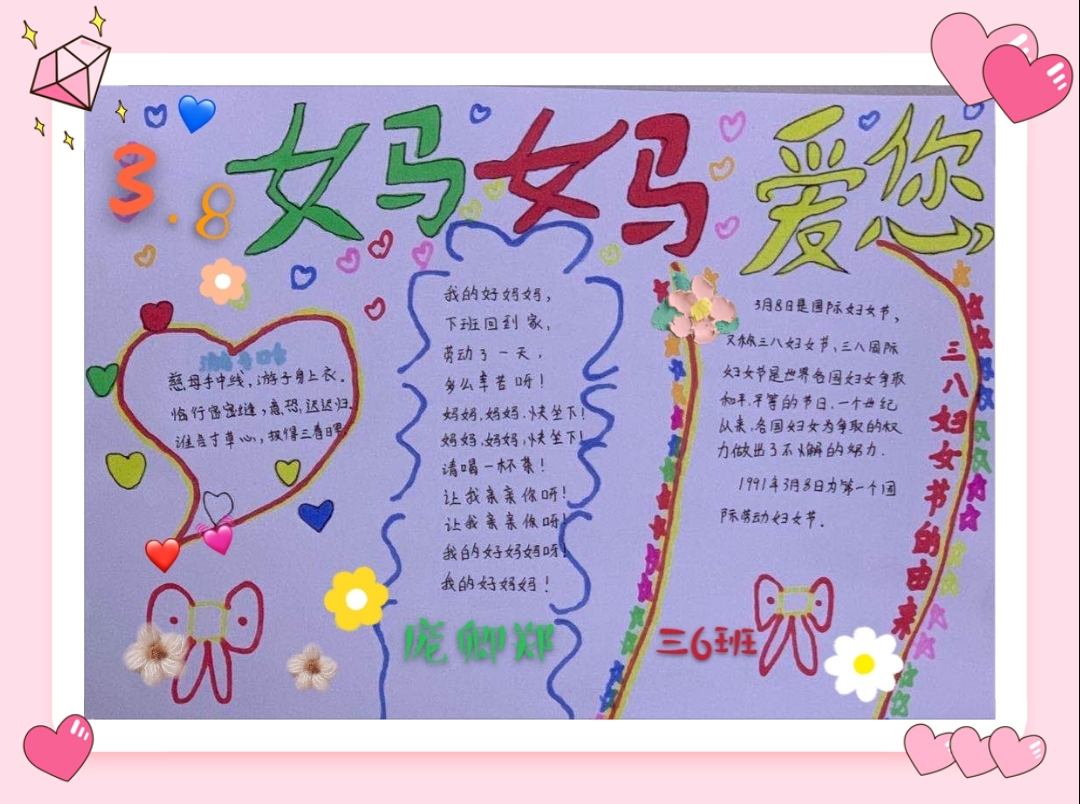 3.8
妈妈爱您
慈母手中线，游子身上衣。
临行密密缝，意恐迟迟归。
谁言寸草心，报得三春晖。
我的好妈妈，
下班回到家，
劳动了一天，
多么辛苦呀！
妈妈，妈妈，快坐下！
妈妈，妈妈，快坐下！
请喝一杯茶！
让我亲亲你呀！
让我亲亲你呀！
我的好妈妈呀！
我的好妈妈！
3月8日是国际妇女节，
又称三八妇女节、三八国际
妇女节是世界各国妇女争取
和平、平等的节日，一个世纪
以来，各国妇女为争取的权
力做出了不懈的努力.
1991年3月8日为第一个国
际劳动妇女节。
三八妇女节的由来
庞卿郑
三6班